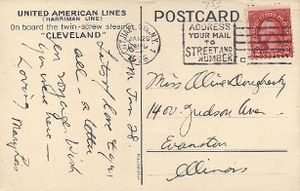 UNITED AMERICAN LINES
(HARRIMAN LINE)
On board the twin-screw steamer
"CLEVELAND"
Jan 28
Lots of love to you
all - a letter
en voyage. Wish
you were here -
Loving
POSTCARD
JAN 29
ADDRESS
YOUR MAIL
TO
STREET AND
NUMBER
Miss Olive Dougherty
1400 Judson Ave.
Evanston
Illinois